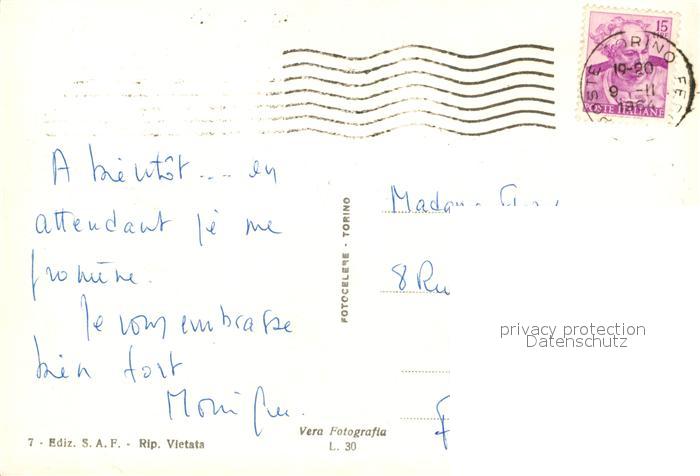 15
LIRE
TORINO FER
10-20
9 - II
1964
POSTE ITALIANE
A bientôt .... en
attendant je me
promène.
Je vous embrasse
bien fort
Monique.
FOTOCELERE - TORINO
Madame
8 Ru
privacy protection
Datenschutz
Vera Fotografia
L. 30
7 - Ediz. S. A. F. - Rip. Vietata